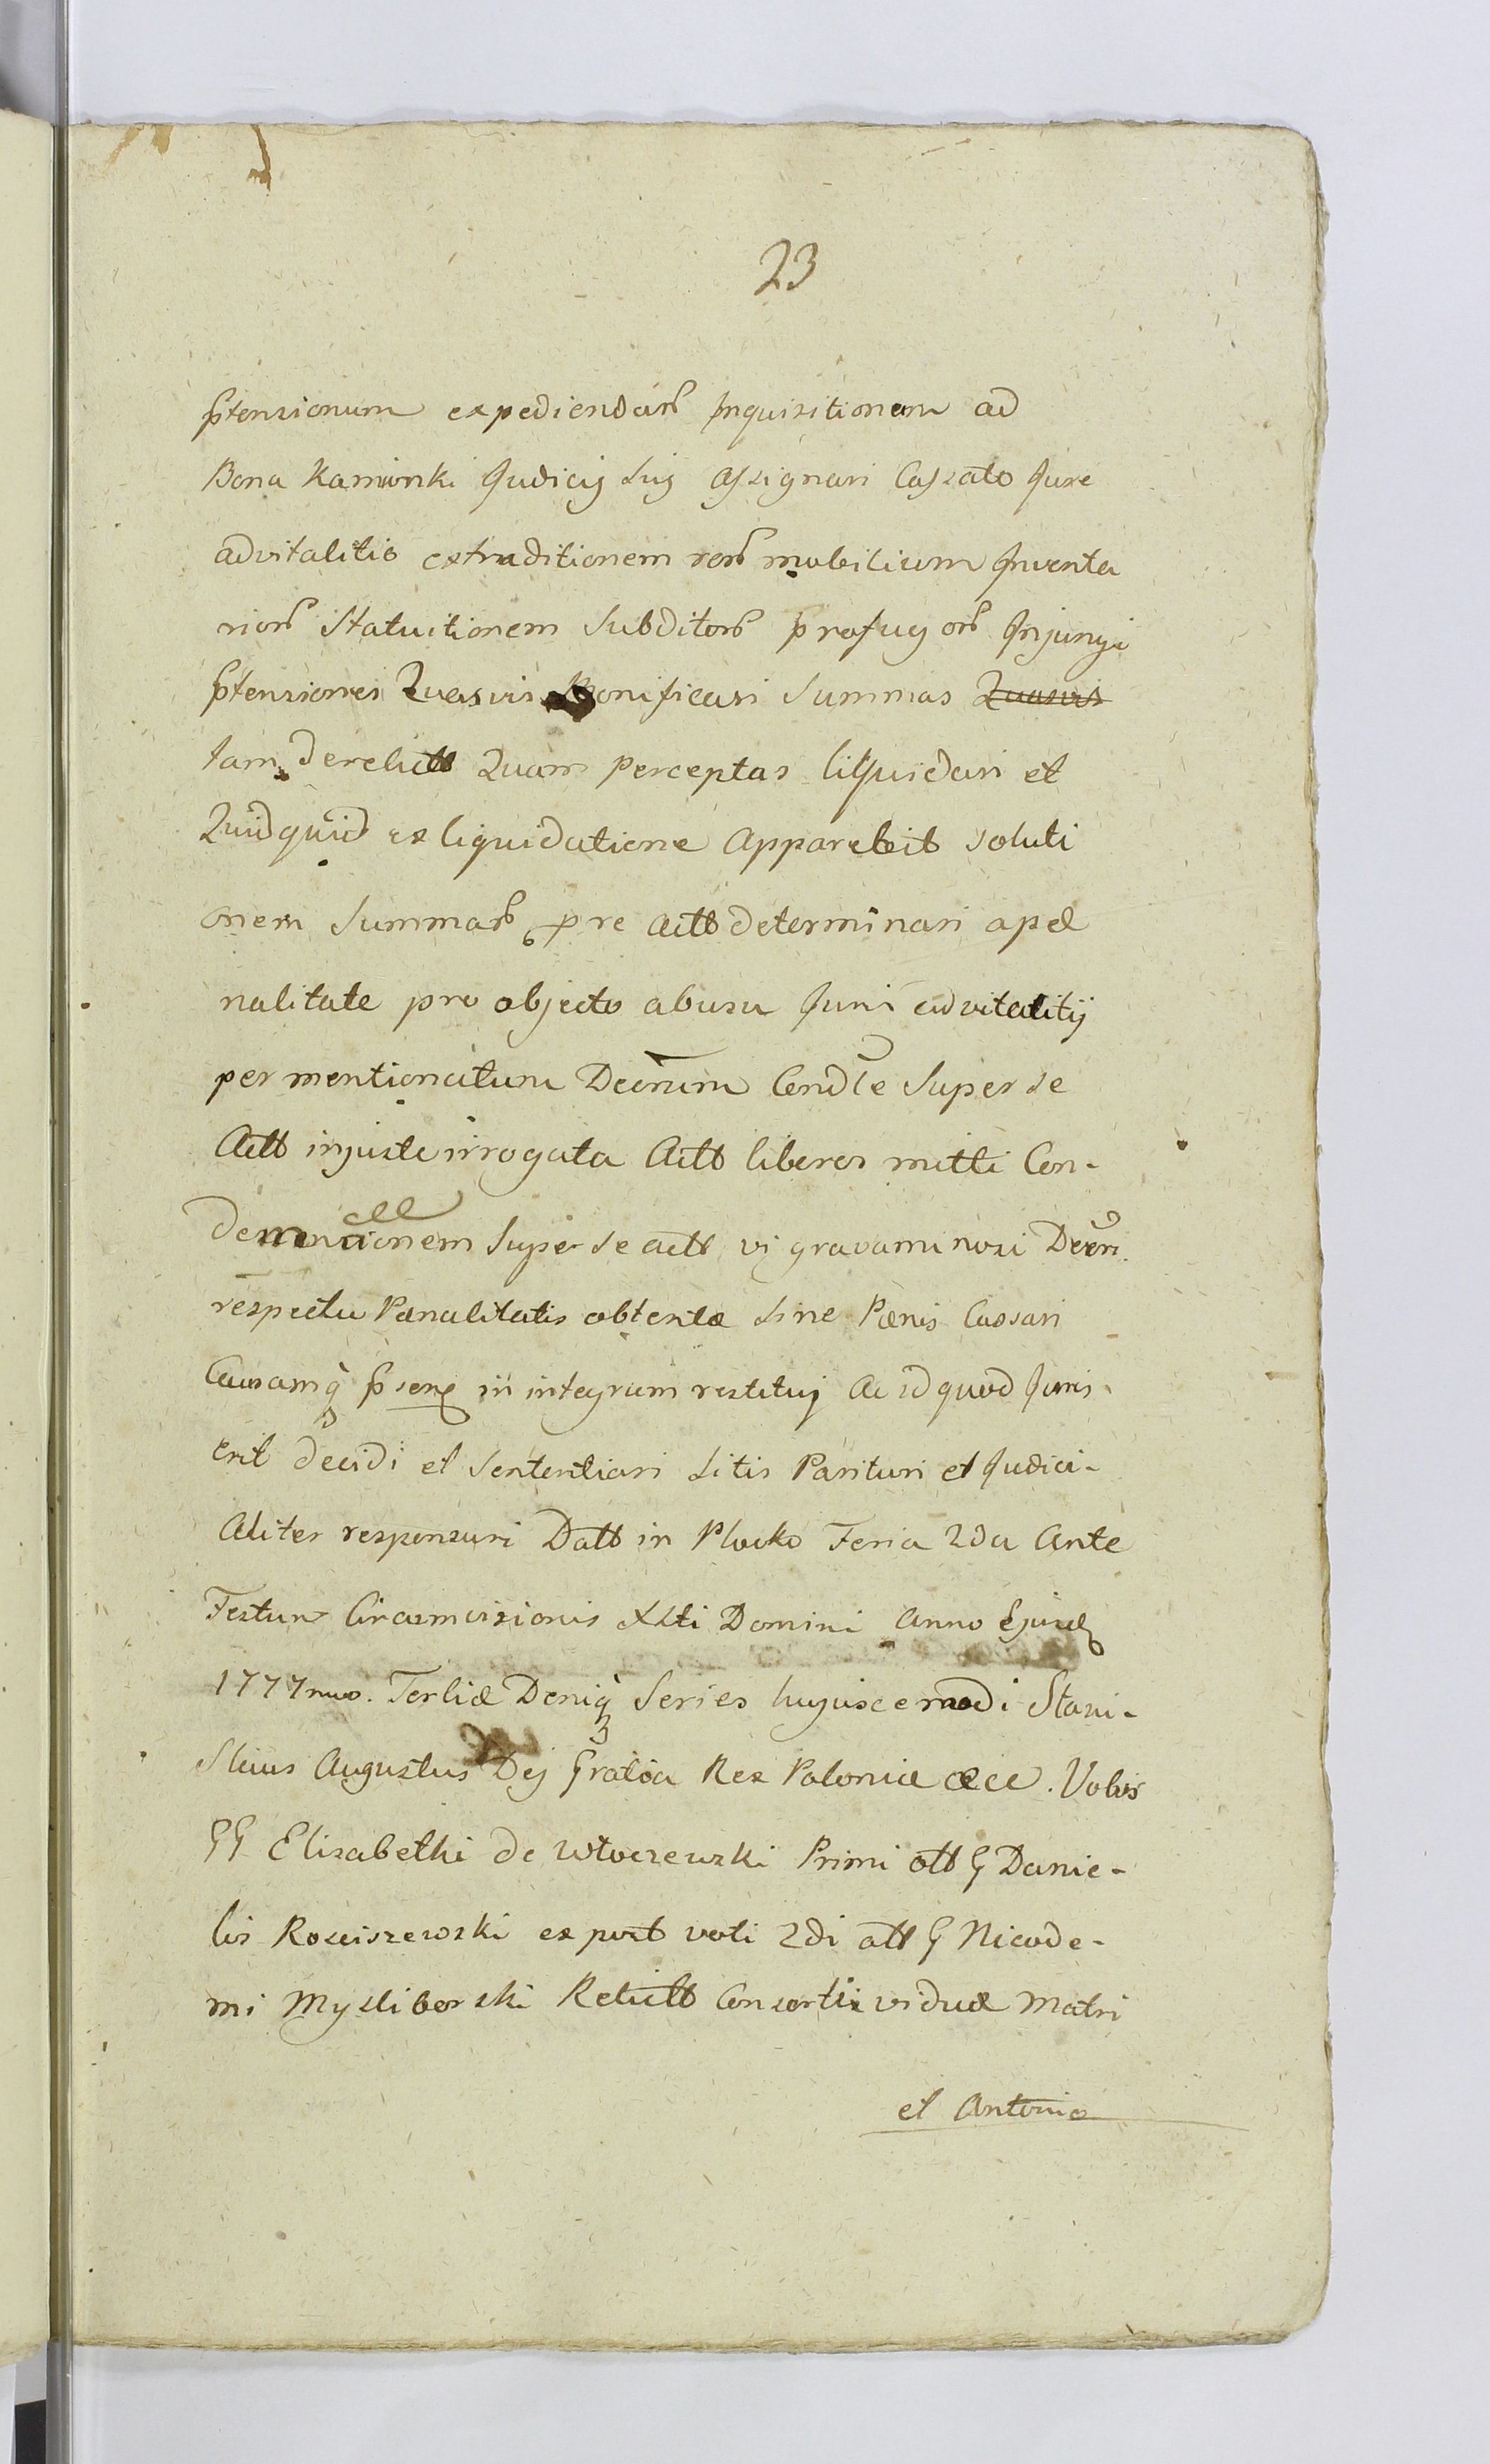 23
ptensionum expediendarb Inquisitionem ad
Bona Kamionki Judicij sui Assignari Cassato Jure
advitalitio extraditionem rerb mobilium Inventa
riorb Statuitionem Subditorb profugorb Injungi
ptensiones Quasvis Bonificari Summas Quasvis
tam derelictt Quam perceptas liquidari et
Quidquid ex liquidatione Apparebit soluti
onem Summarb pre Actt determinari a pæ
nalitate pro objecto abusu Juri advitalitij
per mentionatum Decrum Condle Super se
Actt injuste irrogata Actt liberos mitti Con-
demnationem Super se actt vi gravaminosi Decri
respectu Pænalitatis obtentæ sine Pænis Cassari
Causamq psenq in integrum restitui Ac id quod Juris
erit decidi et Sententiari Litis Parituri et Judici-
Aliter responsuri Datt in Plocko Feria 2da Ante
Festum Circumcisionis Xsti Domini Anno Ejusdq
1777mo. Tertiæ Deniq Series hujuscemodi Stani-
slaus Augustus Dej Gratia Rex Poloniæ &c. Vobis
GG Elisabethi de Wtoczewski Primi ott G Danie-
lis Rosciszewski ex post voti 2di ott G Nicode-
mi Mysliborski Relictt Consortis viduæ Matri
et Antonio